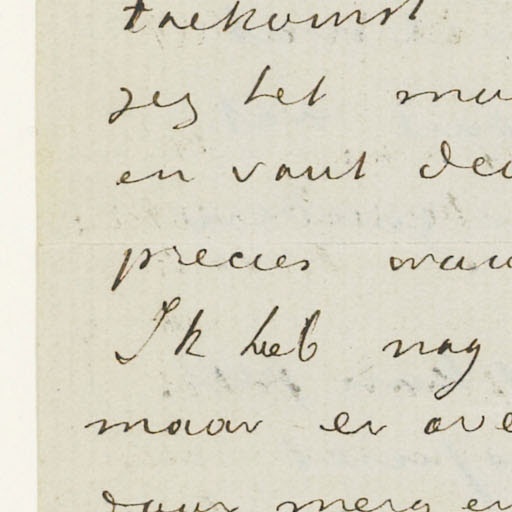 toekomst
zeg het
en vout
precies
Ik heb nog
maar er ove
daar merg en